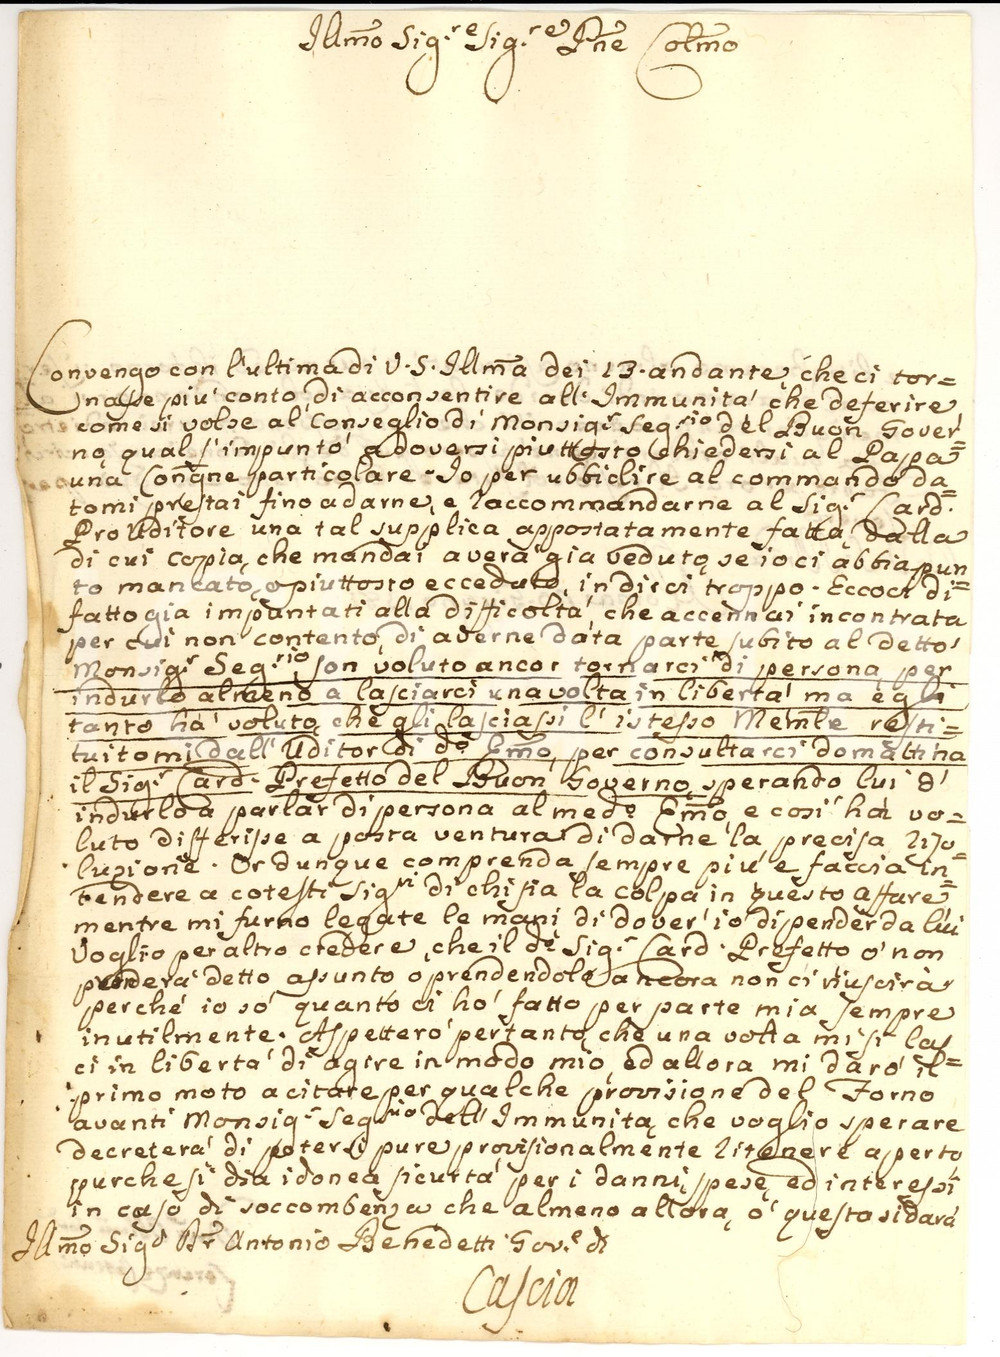 Illmo Sig.re Sig.re Pne Colmo
Convengo con l'ultima di V.S. Illma dei 13. andante, che ci tor=
nasse più conto di acconsentire all'Immunità che deferire
come si volse al Conseglio di Monsig.r Seg.rio del Buon Gover=
no, qual s'impuntò a doversi piuttosto chiedersi al Papa
una Congne particolare. Io per ubbidire al commando da=
tomi prestai fino adarne, e raccommandarne al Sig.r Card.
ProUditore una tal supplica appostatamente fatta, dalla
di cui copia, che mandai averà già veduto, se io ci abbia pun
to mancato, o piuttosto ecceduto, in dirci troppo. Eccoci di=
fatto già impuntati alla difficoltà, che accennai incontrata
per cui non contento di averne data parte subito al detto
Monsig.r Seg.rio son voluto ancor tornarci di persona per
indurlo almeno a lasciarci una volta in libertà ma egli
tanto hà voluto, che gli lasciassi l'istesso Memle resti=
tuitomi dall'Uditor di do Emo, per consultarci domattina
il Sig.r Card. Prefetto del Buon Governo, sperando lui d'
indurlo a parlar di persona al medo Emo, e così hà vo=
luto differisse a posta ventura di darne la precisa riso=
luzione. Or dunque comprenda sempre più e faccia in=
tendere a cotesti Sig.ri di chi sia la colpa in questo affare
mentre mi furno legate le mani di dover io dipender da lui
Voglio per altro credere, che il do Sig.r Card. Prefetto o non
prenderà detto assunto o prendendolo ancora non ci riuscirà
perché io sò quanto ci hò fatto per parte mia sempre
inutilmente. Aspetterò pertanto, che una volta mi si las
ci in libertà di agire in modo mio, ed allora mi darò il=
primo moto a citare per qualche provisione del Forno
avanti Monsig.r Seg.rio dell'Immunità, che voglio sperare
decreterà di potersi pure provisionalmente ritenere aperto
purche si dia idonea sicurtà per i danni, spese, ed interessi
in caso di soccombenza che almeno allora, o questo si darà
Illmo Sig.r Antonio Benedetti Gov.e di
Cascia